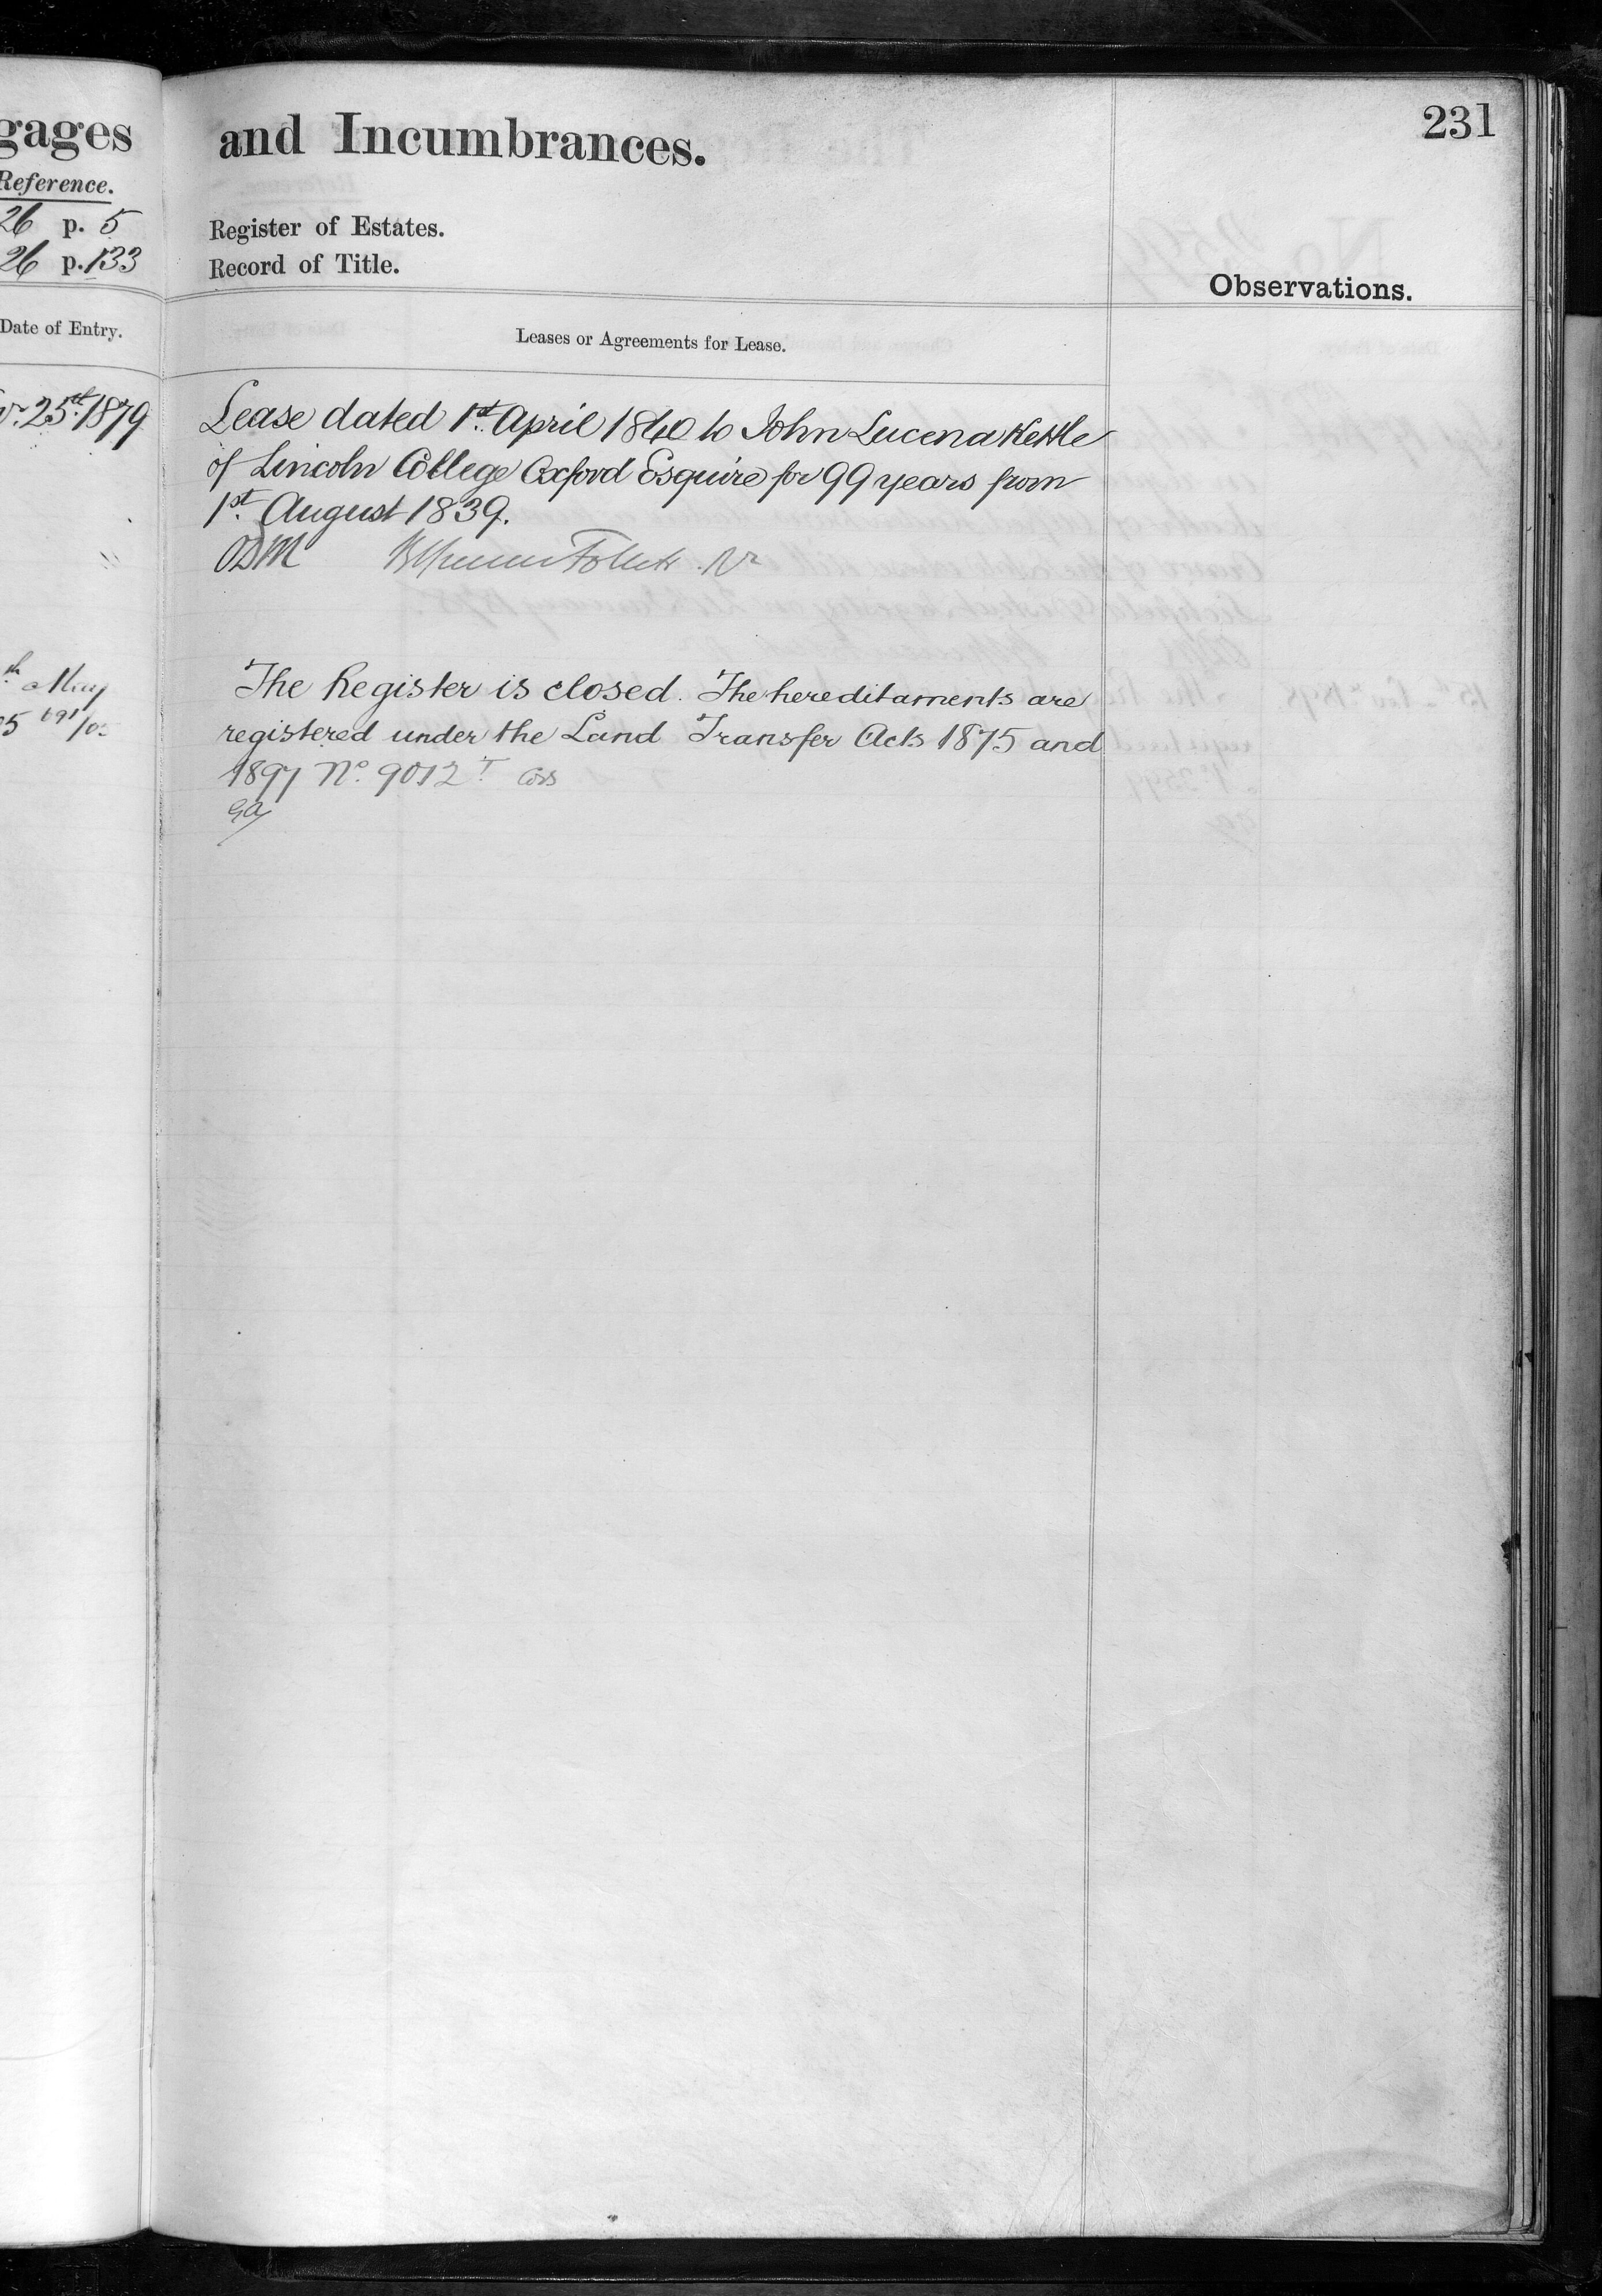 gages
Reference.
26 p. 5
26 p. 133
Date of Entry.
25th 1879
th May
and Incumbrances.
231
Register of Estates.
Record of Title.
Observations.
Leases or Agreements for Lease.
Lease dated 1st April 1840 to John Lucena Kettle
of Lincoln College Oxford Esquire for 99 years from
1st August 1839.
ODM
The Register is closed. The hereditaments are
registered under the Land Transfer Acts 1875 and
1897 No. 9012